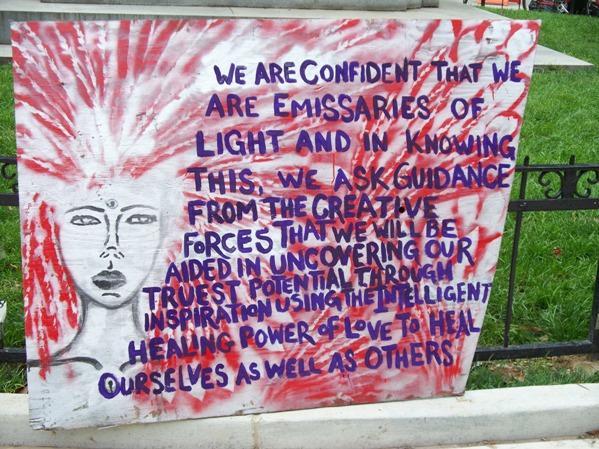 WE ARE CONFIDENT THAT WE
ARE EMISSARIES OF
LIGHT AND IN KNOWING
THIS, WE ASK GUIDANCE
FROM THE CREATIVE
FORCES THAT WE WILL BE
AIDED IN UNCOVERING OUR
TRUEST POTENTIAL THROUGH
INSPIRATION USING THE INTELLIGENT
HEALING POWER OF LOVE TO HEAL
OURSELVES AS WELL AS OTHERS